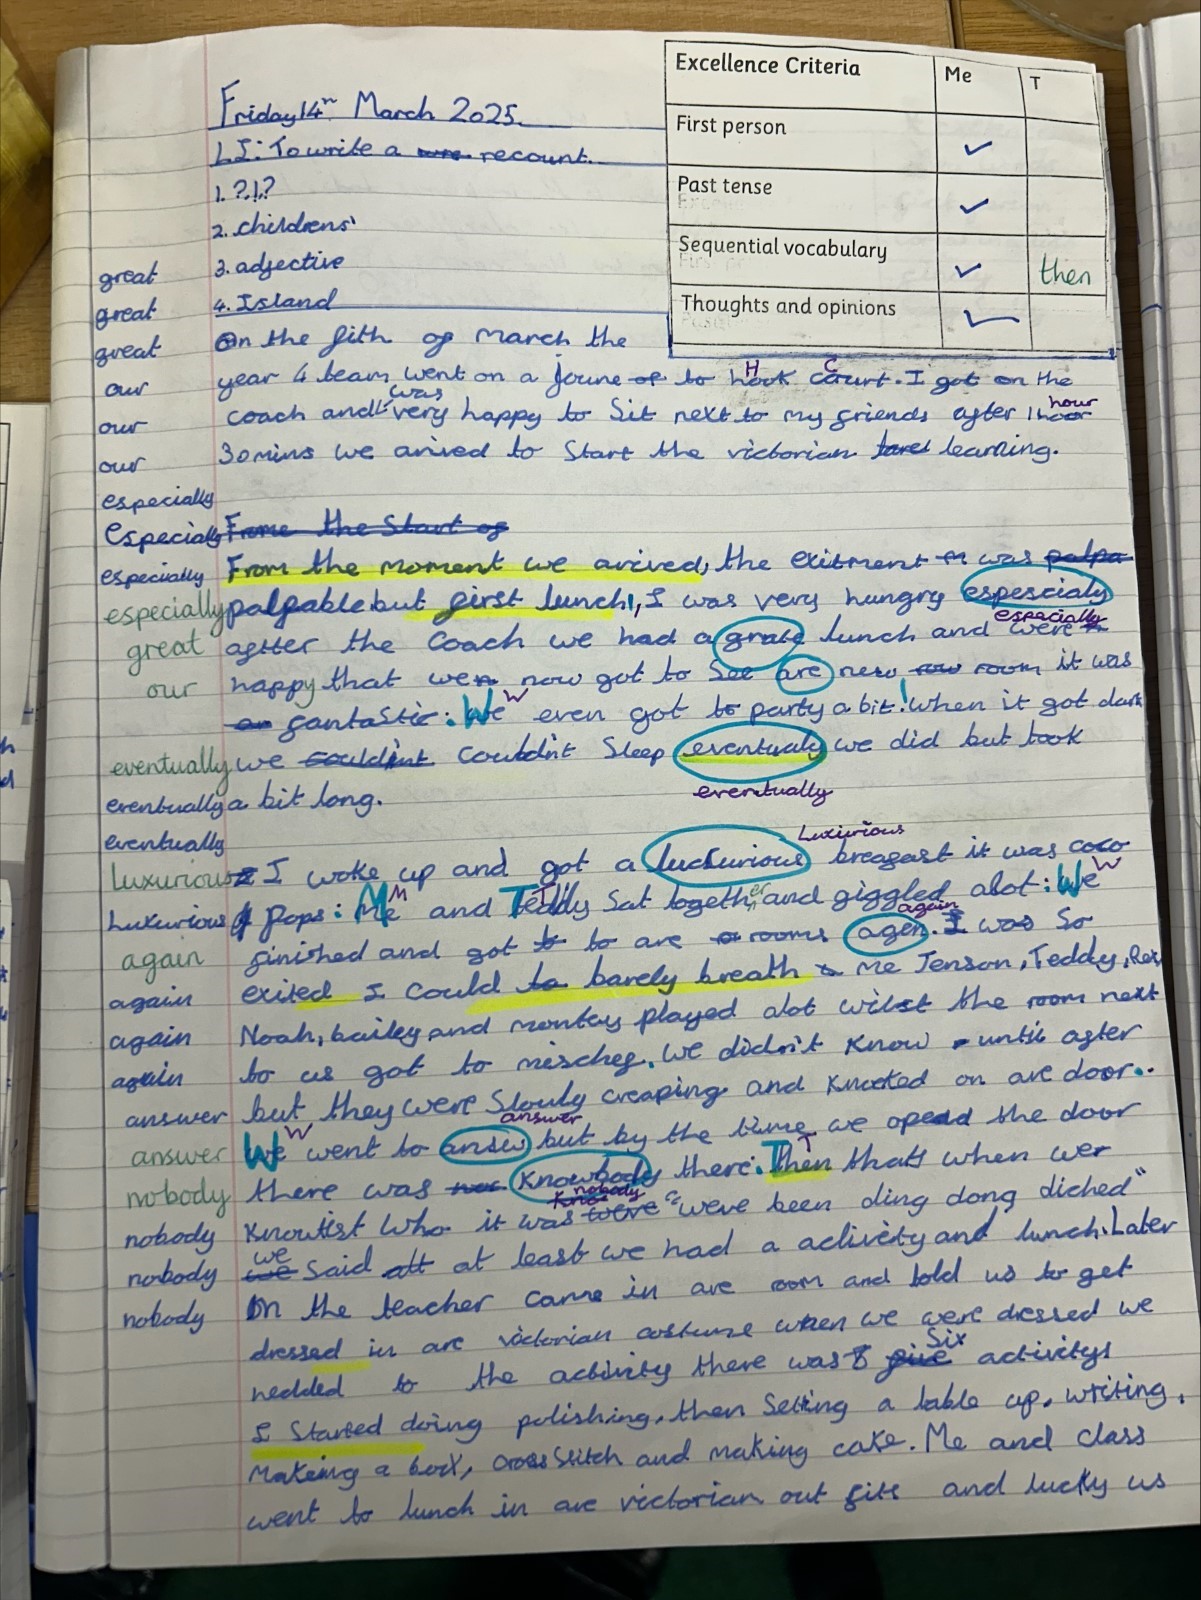 Excellence Criteria Me T
First person ✓
Past tense ✓
Sequential vocabulary ✓ then
Thoughts and opinions ✓
Friday 14th March 2025.
LI: To write a recount.
1. ?!?
2. childrens'
great 3. adjective
great 4. Island
great On the fith of March the
our year 4 team went on a joune to Hook Court. I got on the
our coach and I was very happy to Sit next to my friends after 1 hour
our 30mins we arived to Start the victorian learning.
especially
Especially From the Start of
especially From the moment we arived, the exitment was palpa
especially palpable but first lunch!, I was very hungry espescialy especially
great after the Coach we had a grate lunch and were
our happy that we now got to See are new room it was
fantastic. We even got to party a bit! when it got dark
eventually we couldint Couldn't Sleep eventualy we did but took
eventually a bit long. eventually
eventually
Luxurious I woke up and got a luckurious Luxiurious breafast it was coco
Luxurious pops. Me and Teddy Sat together and giggled alot. We
again finished and got to are rooms agen again. I was So
again exited I could to barely breath Me Jenson, Teddy, Rex
again Noah, bailey and monty played alot wilst the room next
again to us got to mischef. We didn't Know until after
answer but they were Slouly creaping and knocked on are door..
answer We went to answ answer but by the time we opend the door
nobody there was Knowbody nobody there. Then thats when wer
nobody Knowist who it was "weve been ding dong diched"
nobody we Said at least we had a activity and lunch. Later
nobody On the teacher came in are room and told us to get
dressed in are victorian costume when we were dressed we
nedded to the activity there was five Six activitys
I Started doing polishing, then Setting a table up, writing,
Making a box, cross Stitch and making cake. Me and class
went to lunch in are victorian out fits and lucky us